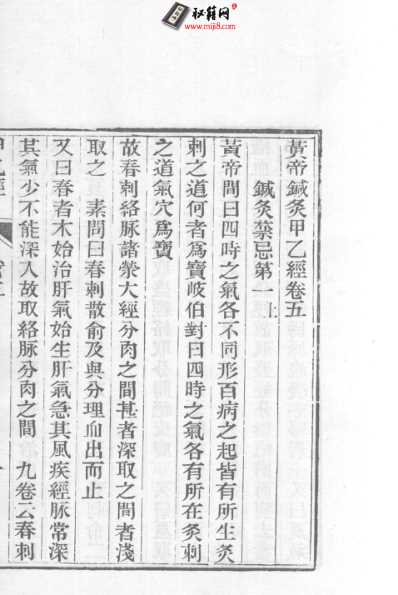 秘籍网
www.miji8.com
黃帝鍼灸甲乙經卷五
鍼灸禁忌第一上
黃帝問曰四時之氣各不同形百病之起皆有所生灸
刺之道何者爲寶岐伯對曰四時之氣各有所在灸刺
之道氣穴爲寶
故春刺絡脈諸滎大經分肉之間甚者深取之間者淺
取之 素問曰春刺散俞及與分理血出而止
又曰春者木始治肝氣始生肝氣急其風疾經脈常深
其氣少不能深入故取絡脈分肉之間 九卷云春刺